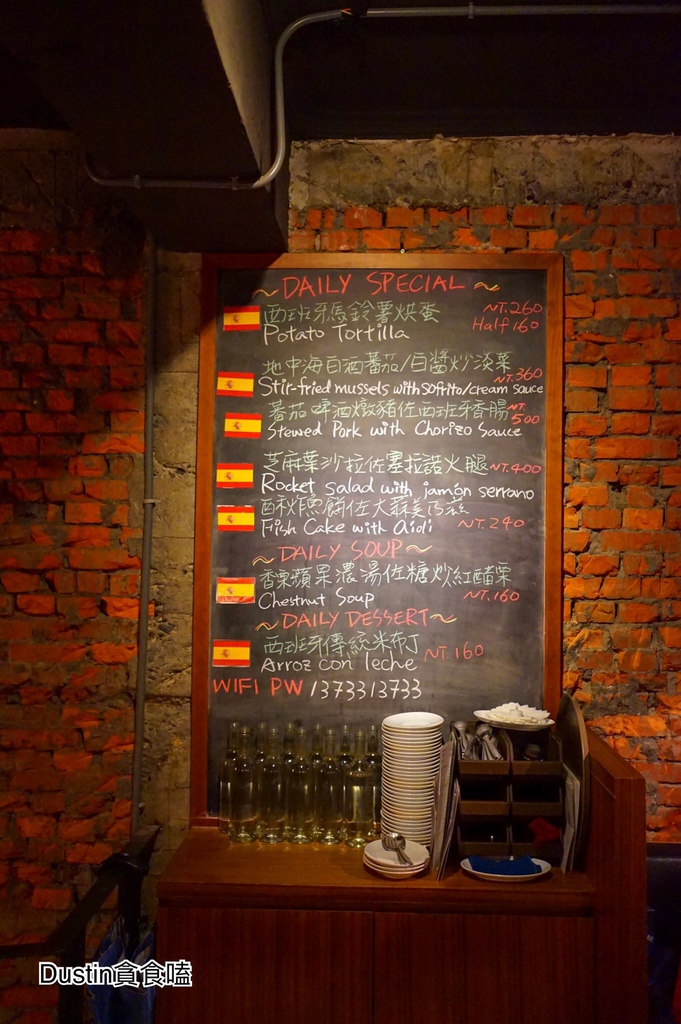 ~ DAILY SPECIAL ~
西班牙馬鈴薯烘蛋 NT.260
Potato Tortilla Half 160
地中海白酒蕃茄/白醬炒淡菜
Stir-fried mussels with sofrito/cream sauce NT.360
蕃茄啤酒燉豬佐西班牙香腸 NT.500
Stewed Pork with Chorizo Sauce
芝麻葉沙拉佐塞拉諾火腿 NT.400
Rocket salad with jamón serrano
酥炸魚餅佐大蒜美乃滋
Fish Cake with Aioli NT.240
~ DAILY SOUP ~
香栗蘋果濃湯佐糖炒紅醋栗
Chestnut Soup NT.160
~ DAILY DESSERT ~
西班牙傳統米布丁 NT.160
Arroz con leche
WIFI PW 1373313733
Dustin貪食嗑